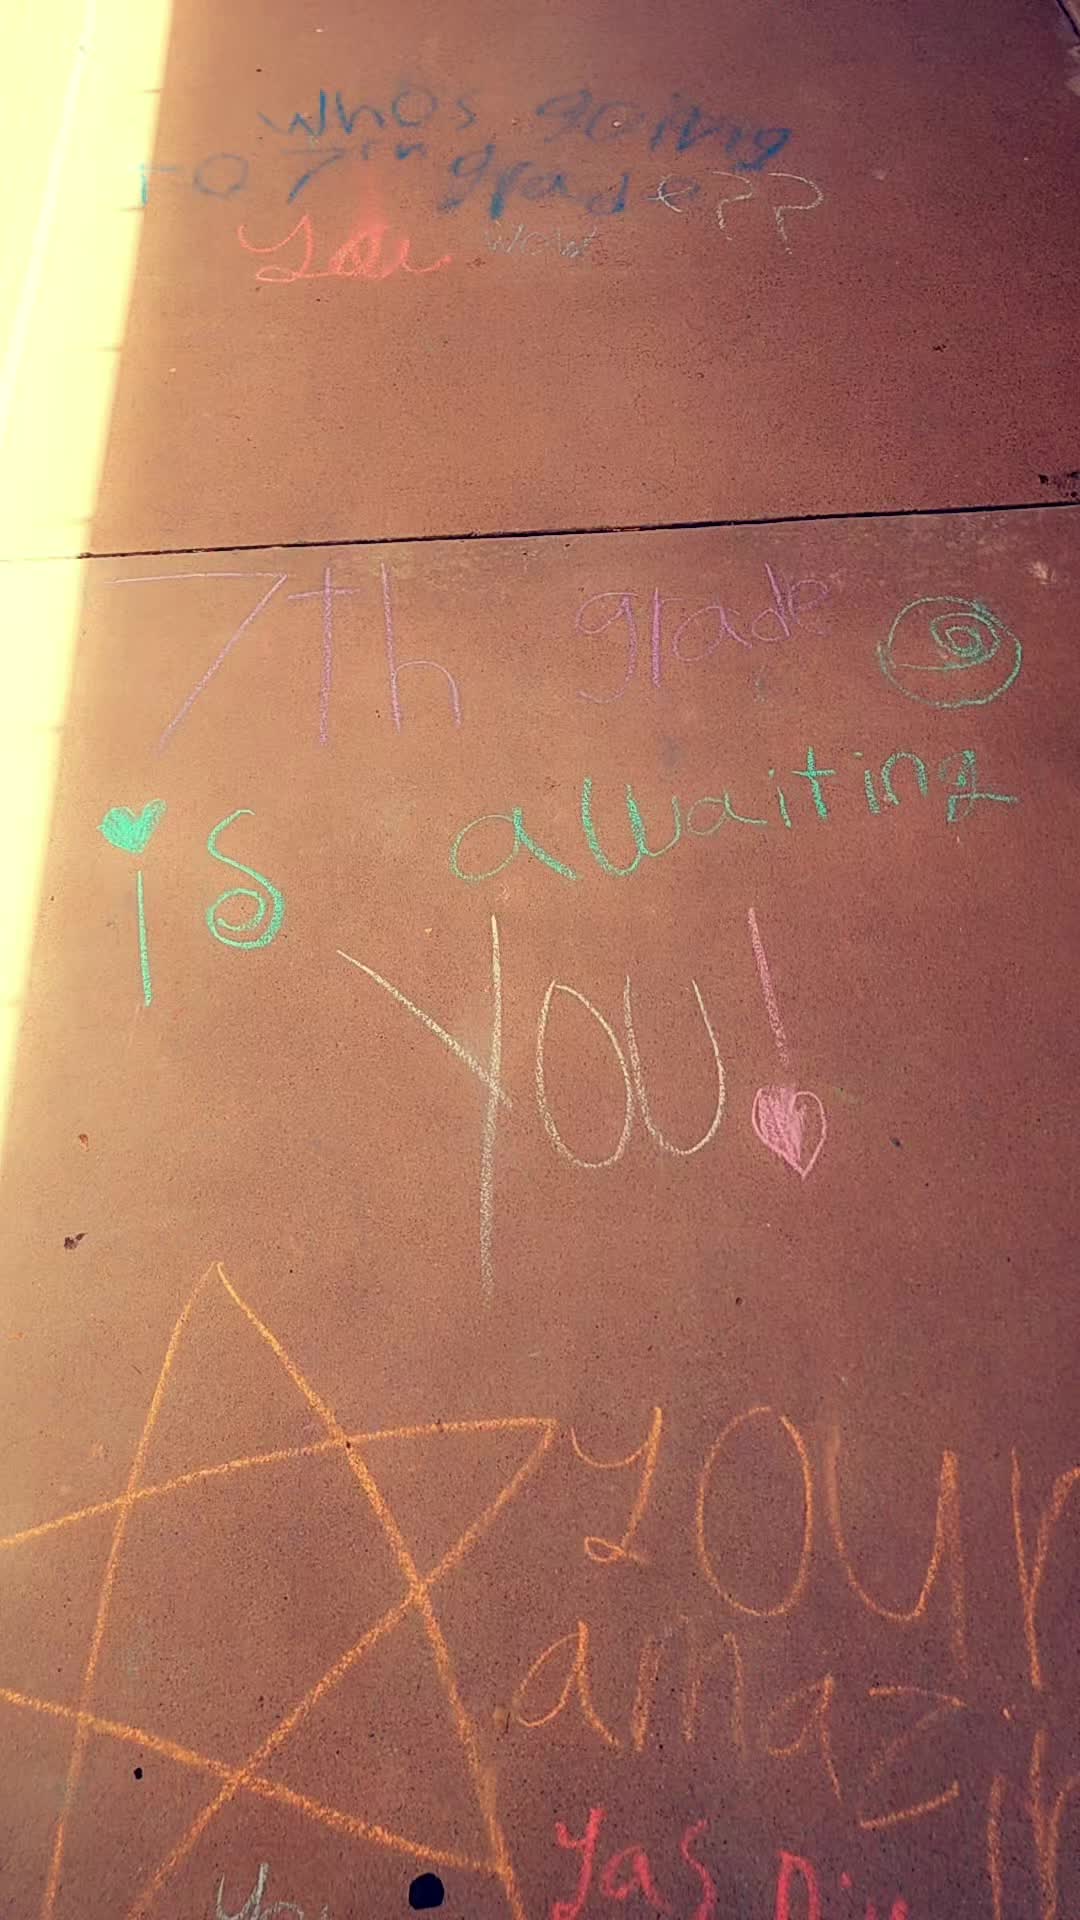 whos going
to 7th grade??
You wow
7th grade
is awaiting
You!
your
amazin
yas
You